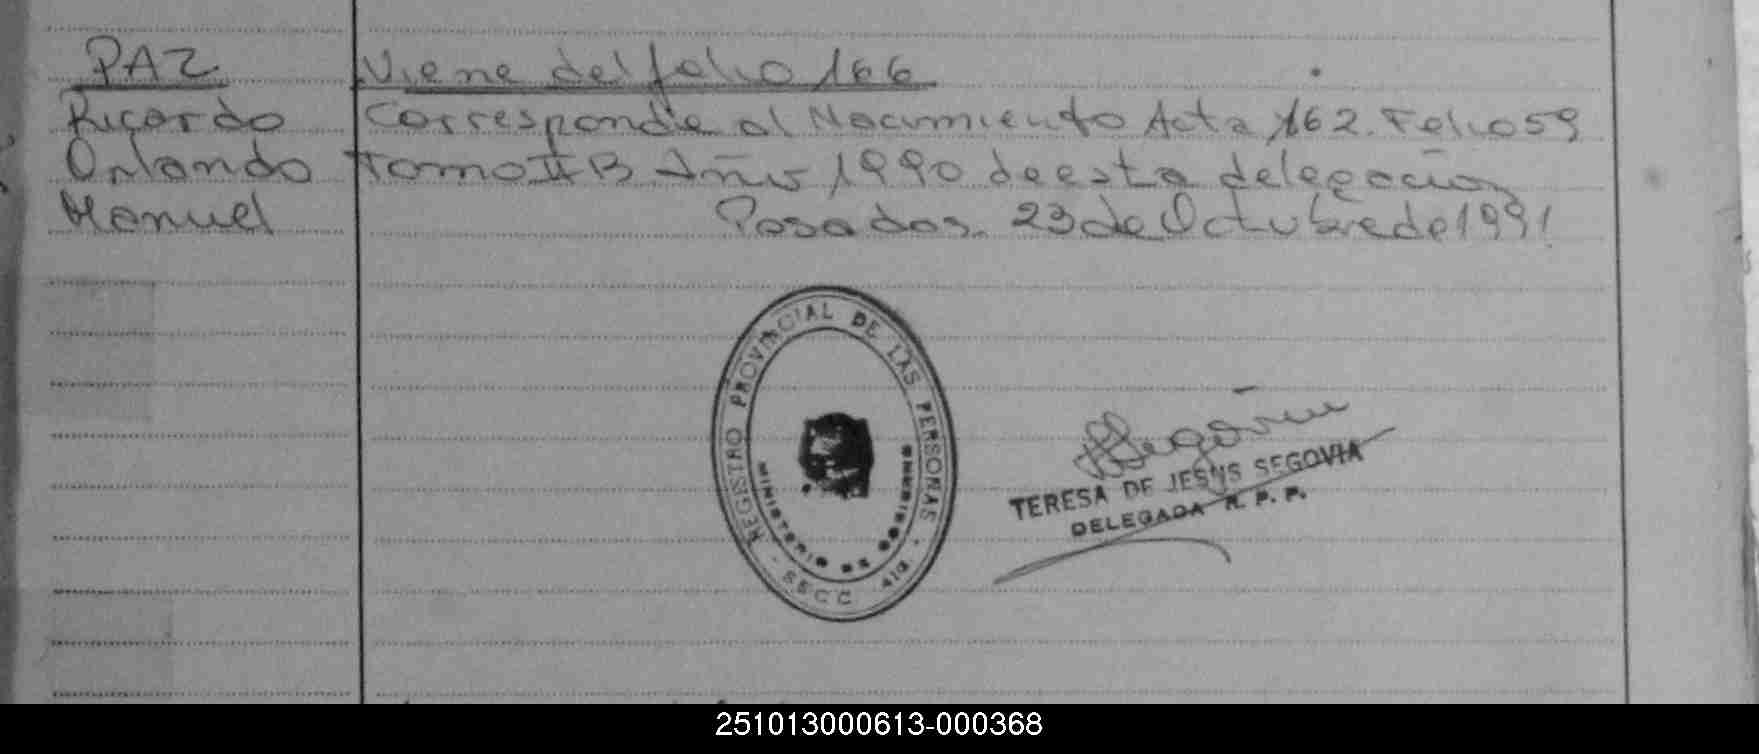 PAZ
Viene del folio 166
Ricardo
Corresponde al Nacimiento Acta 162. Folio 59
Orlando
Tomo II B Año 1990 de esta delegación
Manuel
Posadas. 23 de Octubre de 1991
REGISTRO PROVINCIAL DE LAS PERSONAS
MINISTERIO DE GOBIERNO
SECC
TERESA DE JESUS SEGOVIA
DELEGADA R. P. P.
251013000613-000368